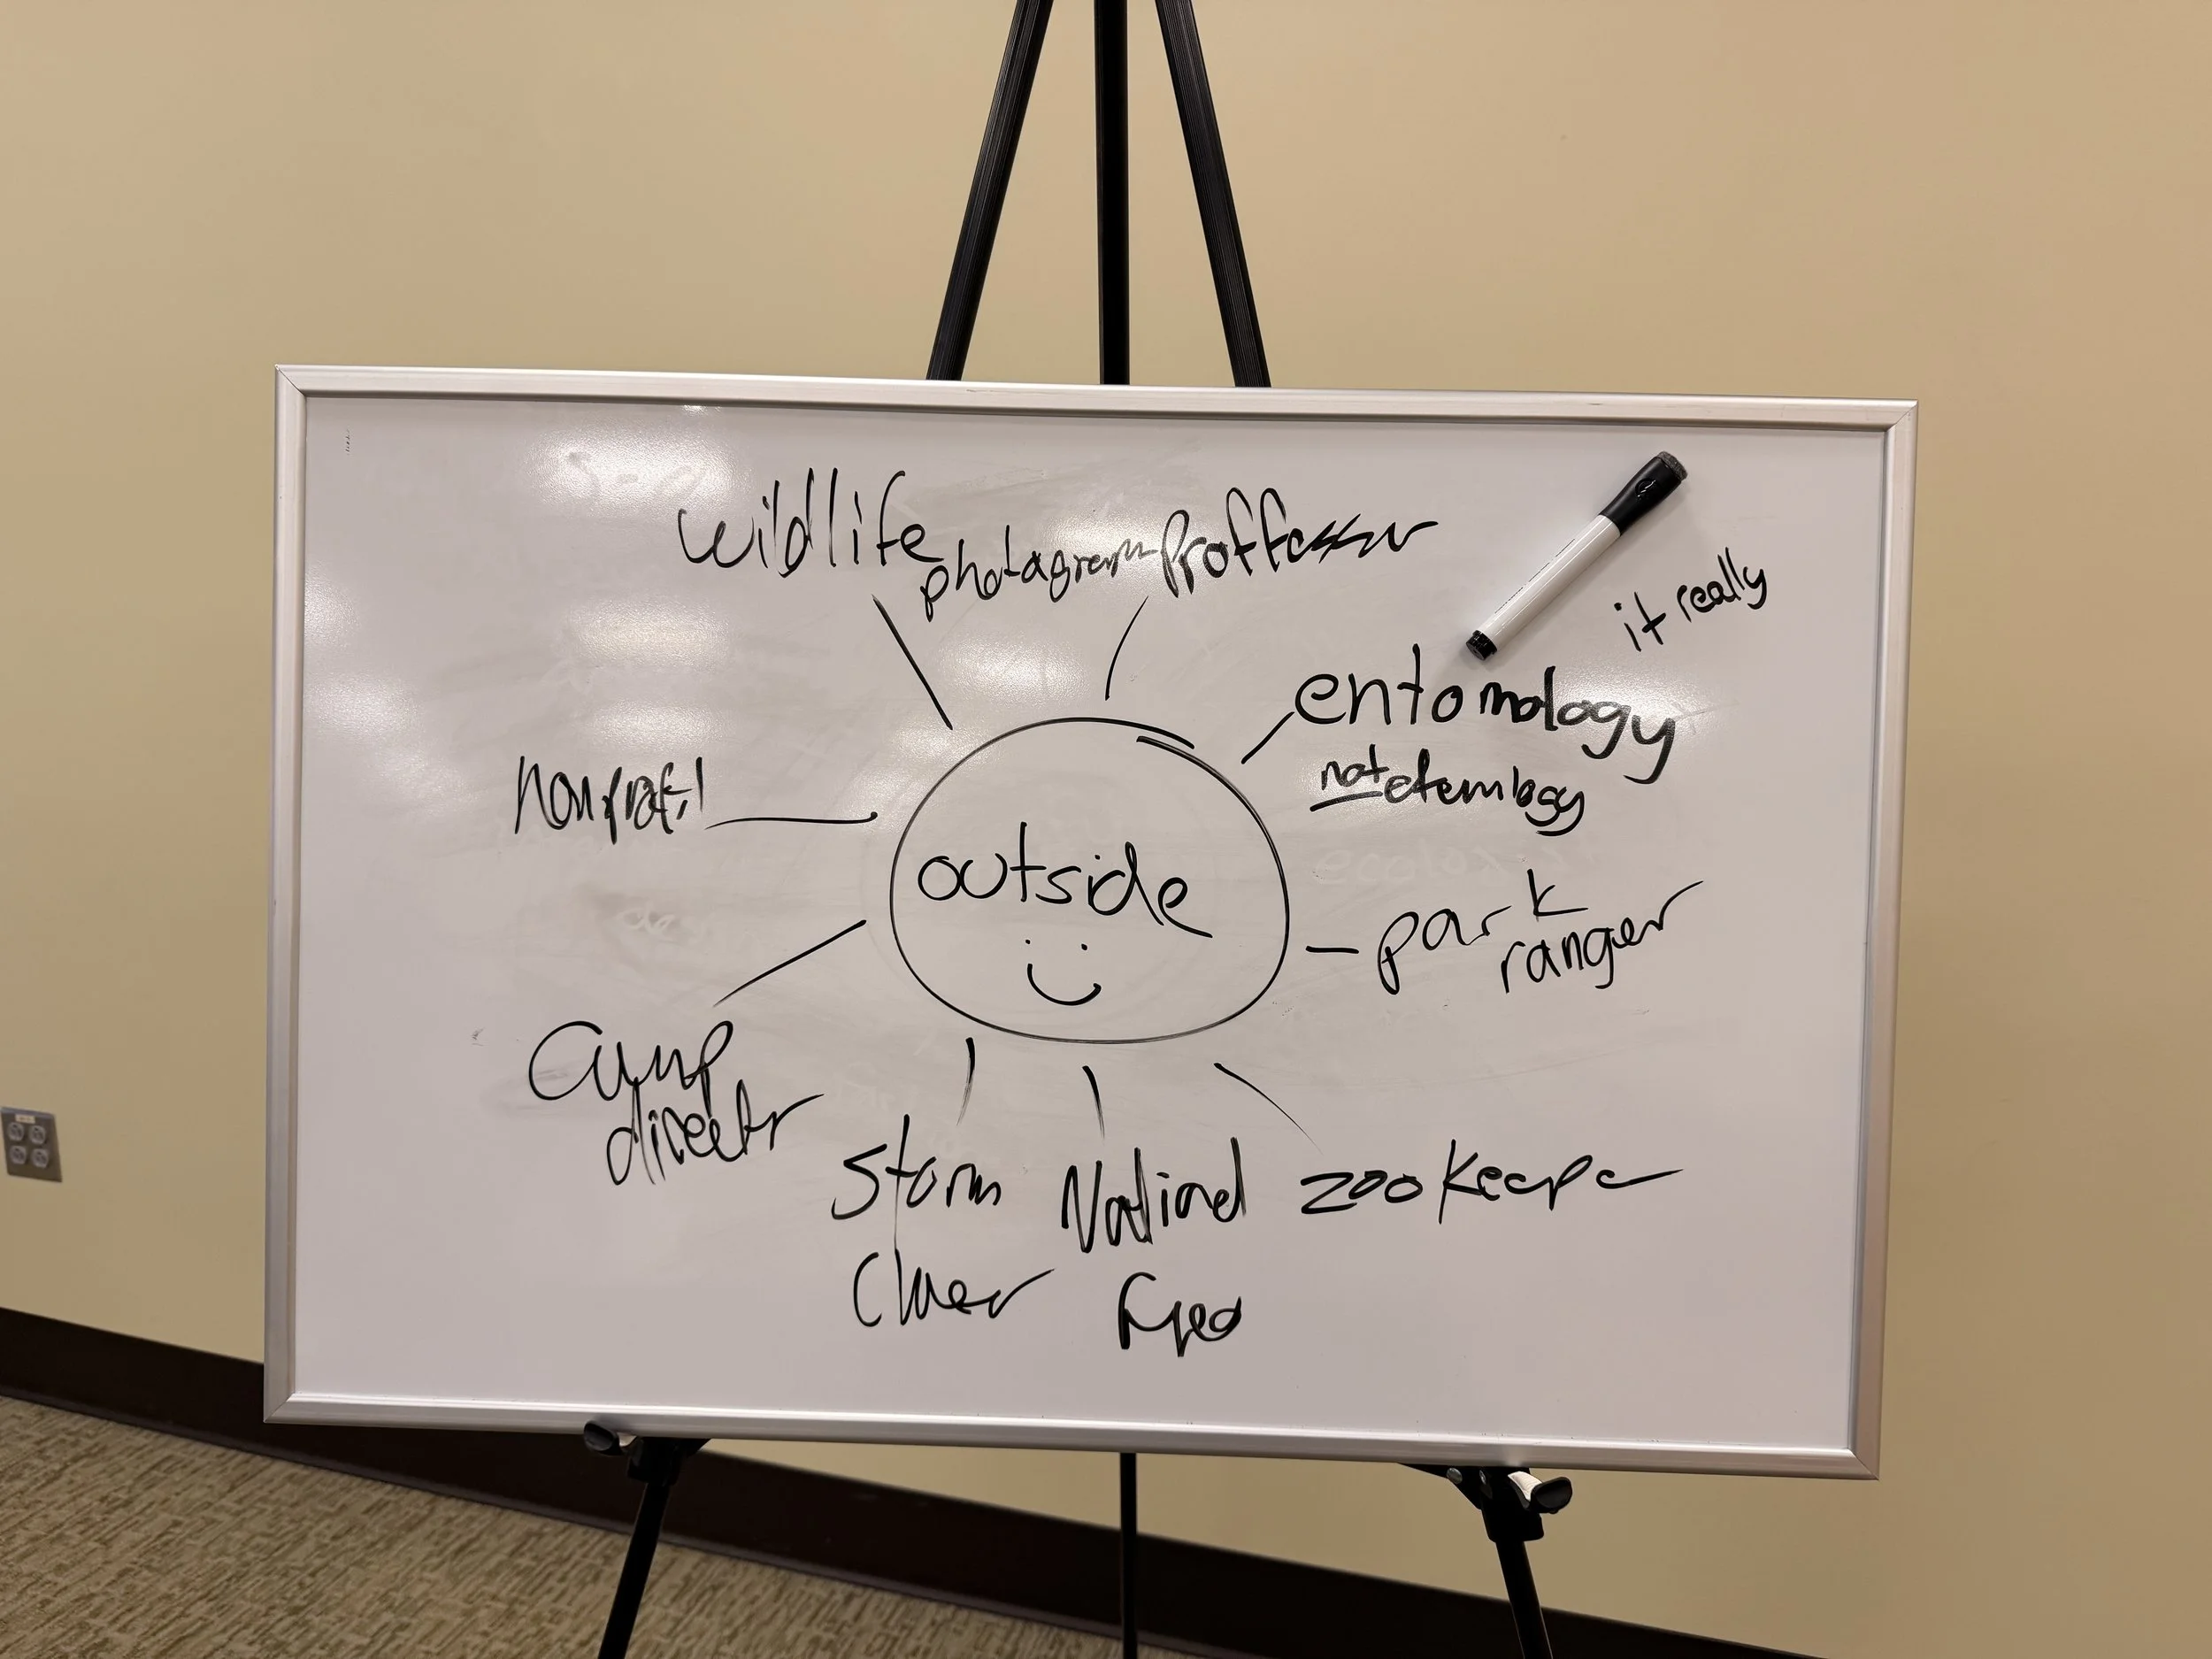 wildlife
Proffessor
it really
entomology
not etemology
nonprofit
outside
park
ranger
Camp
director
Storm National zookeeper
Chaser Geo